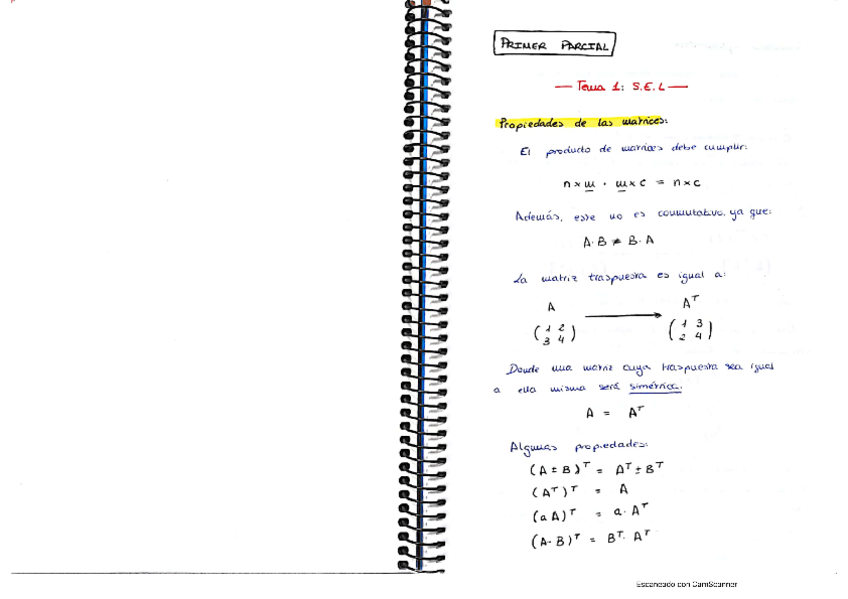 PRIMER PARCIAL
— Tema 1: S.E.L —
Propiedades de las matrices:
El producto de matrices debe cumplir:
n x m · m x c = n x c
Además, este no es conmutativo, ya que:
A·B ≠ B·A
La matriz traspuesta es igual a:
A → A^T
(1 2 / 3 4) (1 3 / 2 4)
Donde una matriz cuya traspuesta sea igual
a ella misma será simétrica.
A = A^T
Algunas propiedades:
(A ± B)^T = A^T ± B^T
(A^T)^T = A
(a A)^T = a · A^T
(A · B)^T = B^T · A^T
Escaneado con CamScanner